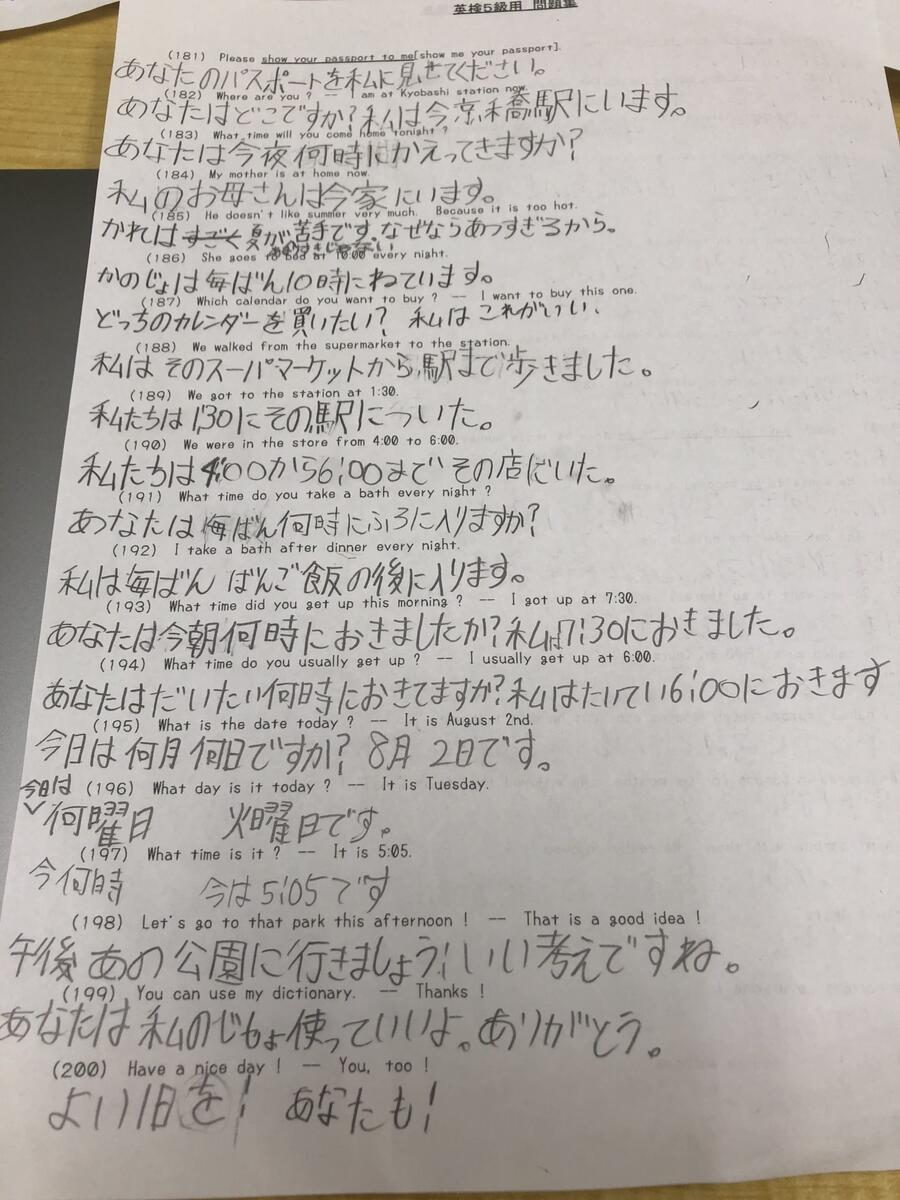 英検5級用 問題集
(181) Please show your passport to me[show me your passport].
あなたのパスポートを私に見せてください。
(182) Where are you ? -- I am at Kyobashi station now.
あなたはどこですか?私は今京橋駅にいます。
(183) What time will you come home tonight ?
あなたは今夜何時にかえってきますか?
(184) My mother is at home now.
私のお母さんは今家にいます。
(185) He doesn't like summer very much. Because it is too hot.
かれは すごく 夏が苦手です。なぜならあつすぎるから。
(186) She goes to bed at 10:00 every night.
かのじょは毎ばん10時にねています。
(187) Which calendar do you want to buy ? -- I want to buy this one.
どっちのカレンダーを買いたい? 私は これがいい。
(188) We walked from the supermarket to the station.
私はそのスーパーマーケットから駅まで歩きました。
(189) We got to the station at 1:30.
私たちは1:30にその駅についた。
(190) We were in the store from 4:00 to 6:00.
私たちは4:00から6:00までその店にいた。
(191) What time do you take a bath every night ?
あなたは毎ばん何時にふろに入りますか?
(192) I take a bath after dinner every night.
私は毎ばん ばんご飯の後に入ります。
(193) What time did you get up this morning ? -- I got up at 7:30.
あなたは今朝何時におきましたか?私は7:30におきました。
(194) What time do you usually get up ? -- I usually get up at 6:00.
あなたはだいたい何時におきてますか?私はたいてい6:00におきます
(195) What is the date today ? -- It is August 2nd.
今日は何月何日ですか? 8月 2日です。
今日は (196) What day is it today ? -- It is Tuesday.
何曜日 火曜日です。
(197) What time is it ? -- It is 5:05.
今何時 今は5:05です
(198) Let's go to that park this afternoon ! -- That is a good idea !
午後あの公園に行きましょう!いい考えですね。
(199) You can use my dictionary. -- Thanks !
あなたは私のじしょ使っていいよ。ありがとう。
(200) Have a nice day ! -- You, too !
よい1日を! あなたも!